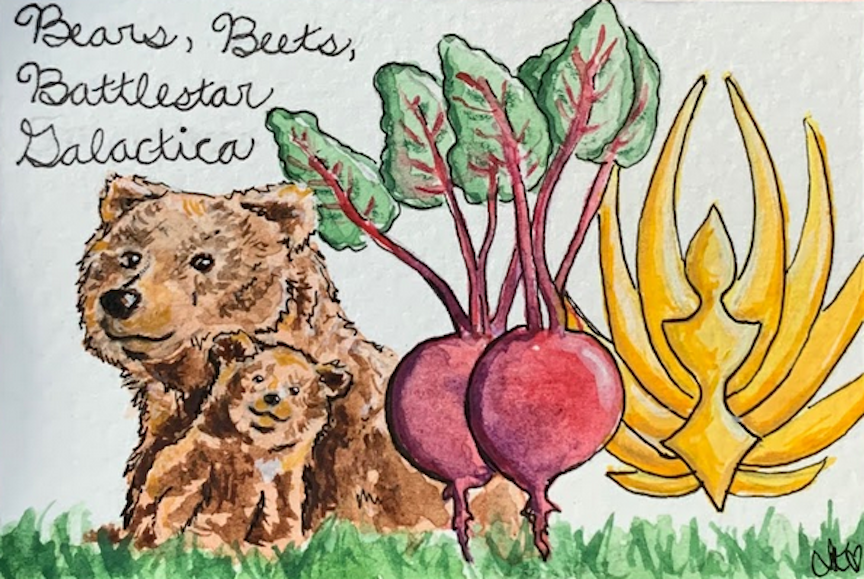 Bears, Beets,
Battlestar
Galactica